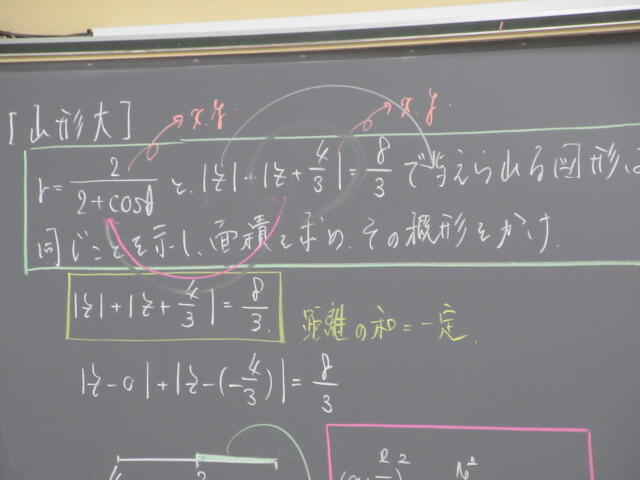 [山形大]
x.y. x.y.
r = 2/(2+cosθ) と、|z|+|z+4/3| = 8/3 で与えられる図形は
同じことを示し、面積を求め、その概形をかけ.
|z|+|z+4/3| = 8/3.
距離の和=一定.
|z-0|+|z-(-4/3)| = 8/3